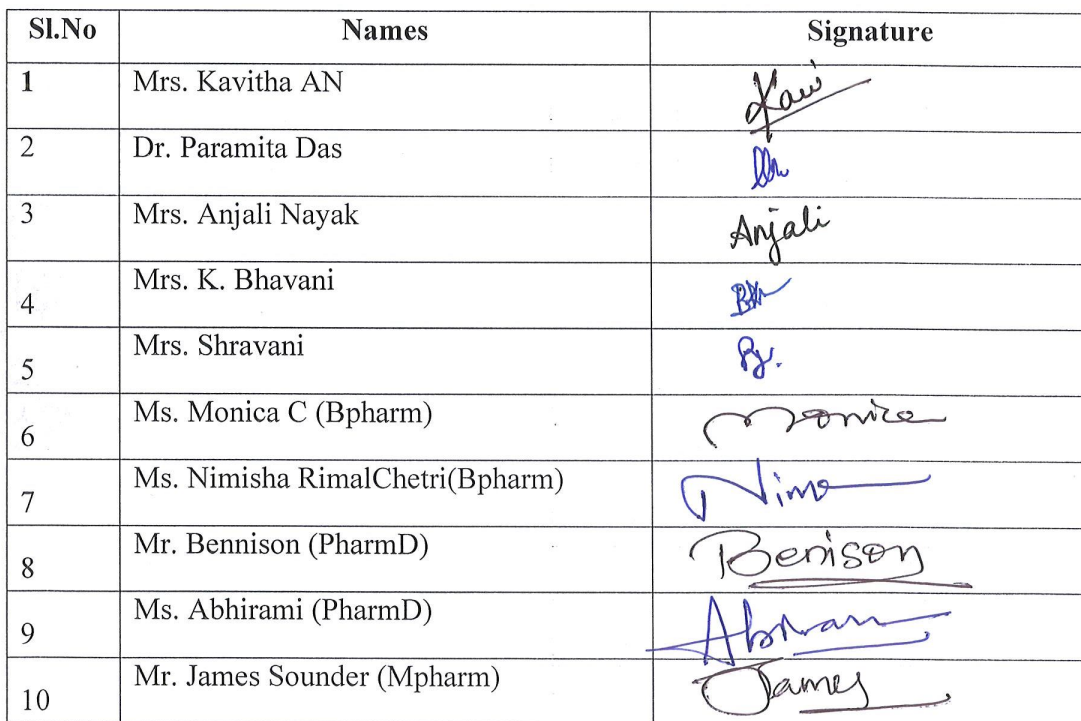 Sl.No Names Signature
1 Mrs. Kavitha AN Kavi
2 Dr. Paramita Das
3 Mrs. Anjali Nayak Anjali
4 Mrs. K. Bhavani
5 Mrs. Shravani
6 Ms. Monica C (Bpharm) Monica
7 Ms. Nimisha RimalChetri(Bpharm)
8 Mr. Bennison (PharmD) Benison
9 Ms. Abhirami (PharmD)
10 Mr. James Sounder (Mpharm) James